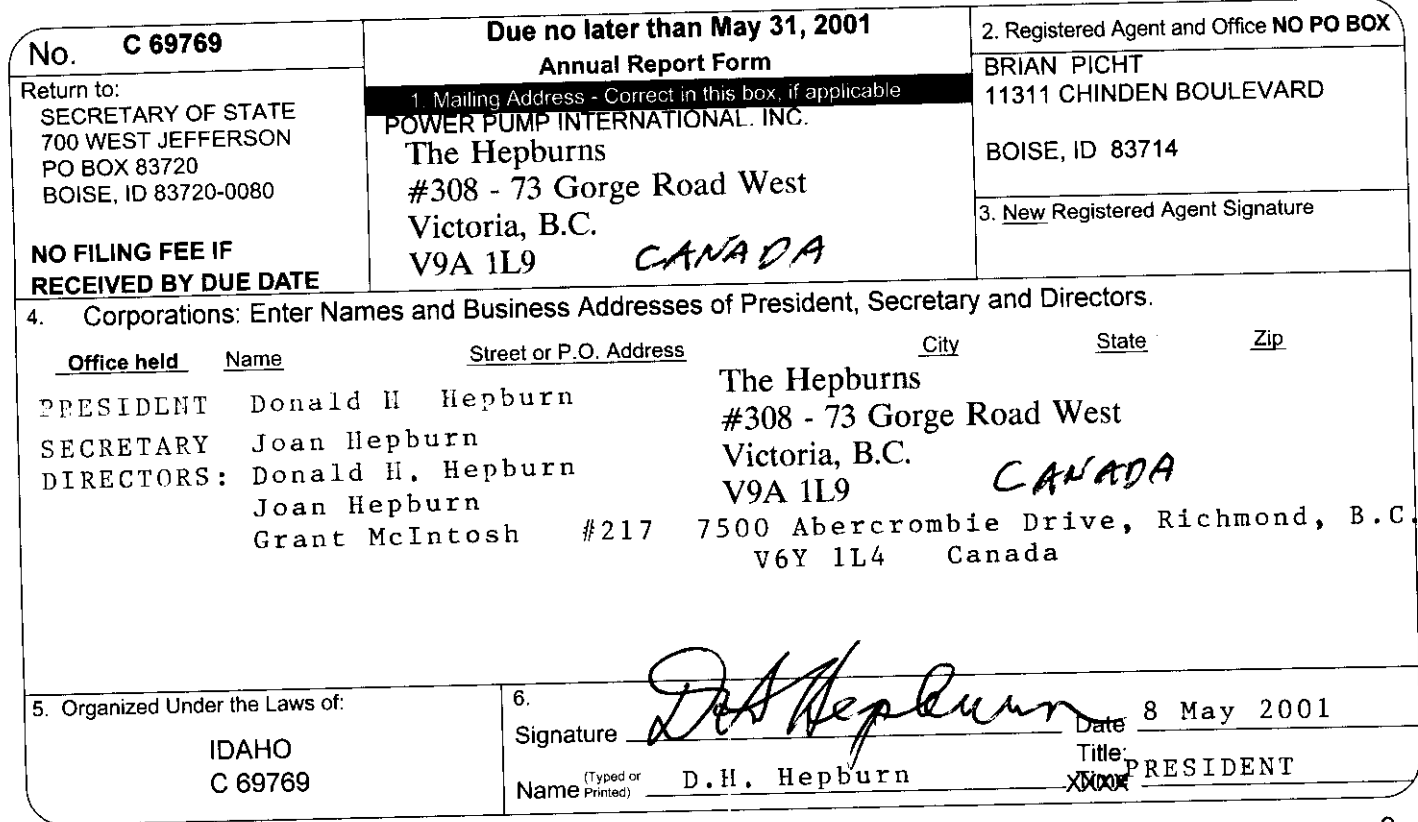 No. C 69769
Return to:
SECRETARY OF STATE
700 WEST JEFFERSON
PO BOX 83720
BOISE, ID 83720-0080
NO FILING FEE IF
RECEIVED BY DUE DATE
Due no later than May 31, 2001
Annual Report Form
1. Mailing Address - Correct in this box, if applicable
POWER PUMP INTERNATIONAL. INC.
The Hepburns
#308 - 73 Gorge Road West
Victoria, B.C.
V9A 1L9 CANADA
2. Registered Agent and Office NO PO BOX
BRIAN PICHT
11311 CHINDEN BOULEVARD
BOISE, ID 83714
3. New Registered Agent Signature
4. Corporations: Enter Names and Business Addresses of President, Secretary and Directors.
Office held Name Street or P.O. Address City State Zip
PRESIDENT Donald H Hepburn
SECRETARY Joan Hepburn
DIRECTORS: Donald H. Hepburn
Joan Hepburn
The Hepburns
#308 - 73 Gorge Road West
Victoria, B.C.
V9A 1L9 CANADA
Grant McIntosh #217 7500 Abercrombie Drive, Richmond, B.C.
V6Y 1L4 Canada
5. Organized Under the Laws of:
IDAHO
C 69769
6.
Signature D H Hepburn Date 8 May 2001
Name (Typed or Printed) D.H. Hepburn Title: PRESIDENT